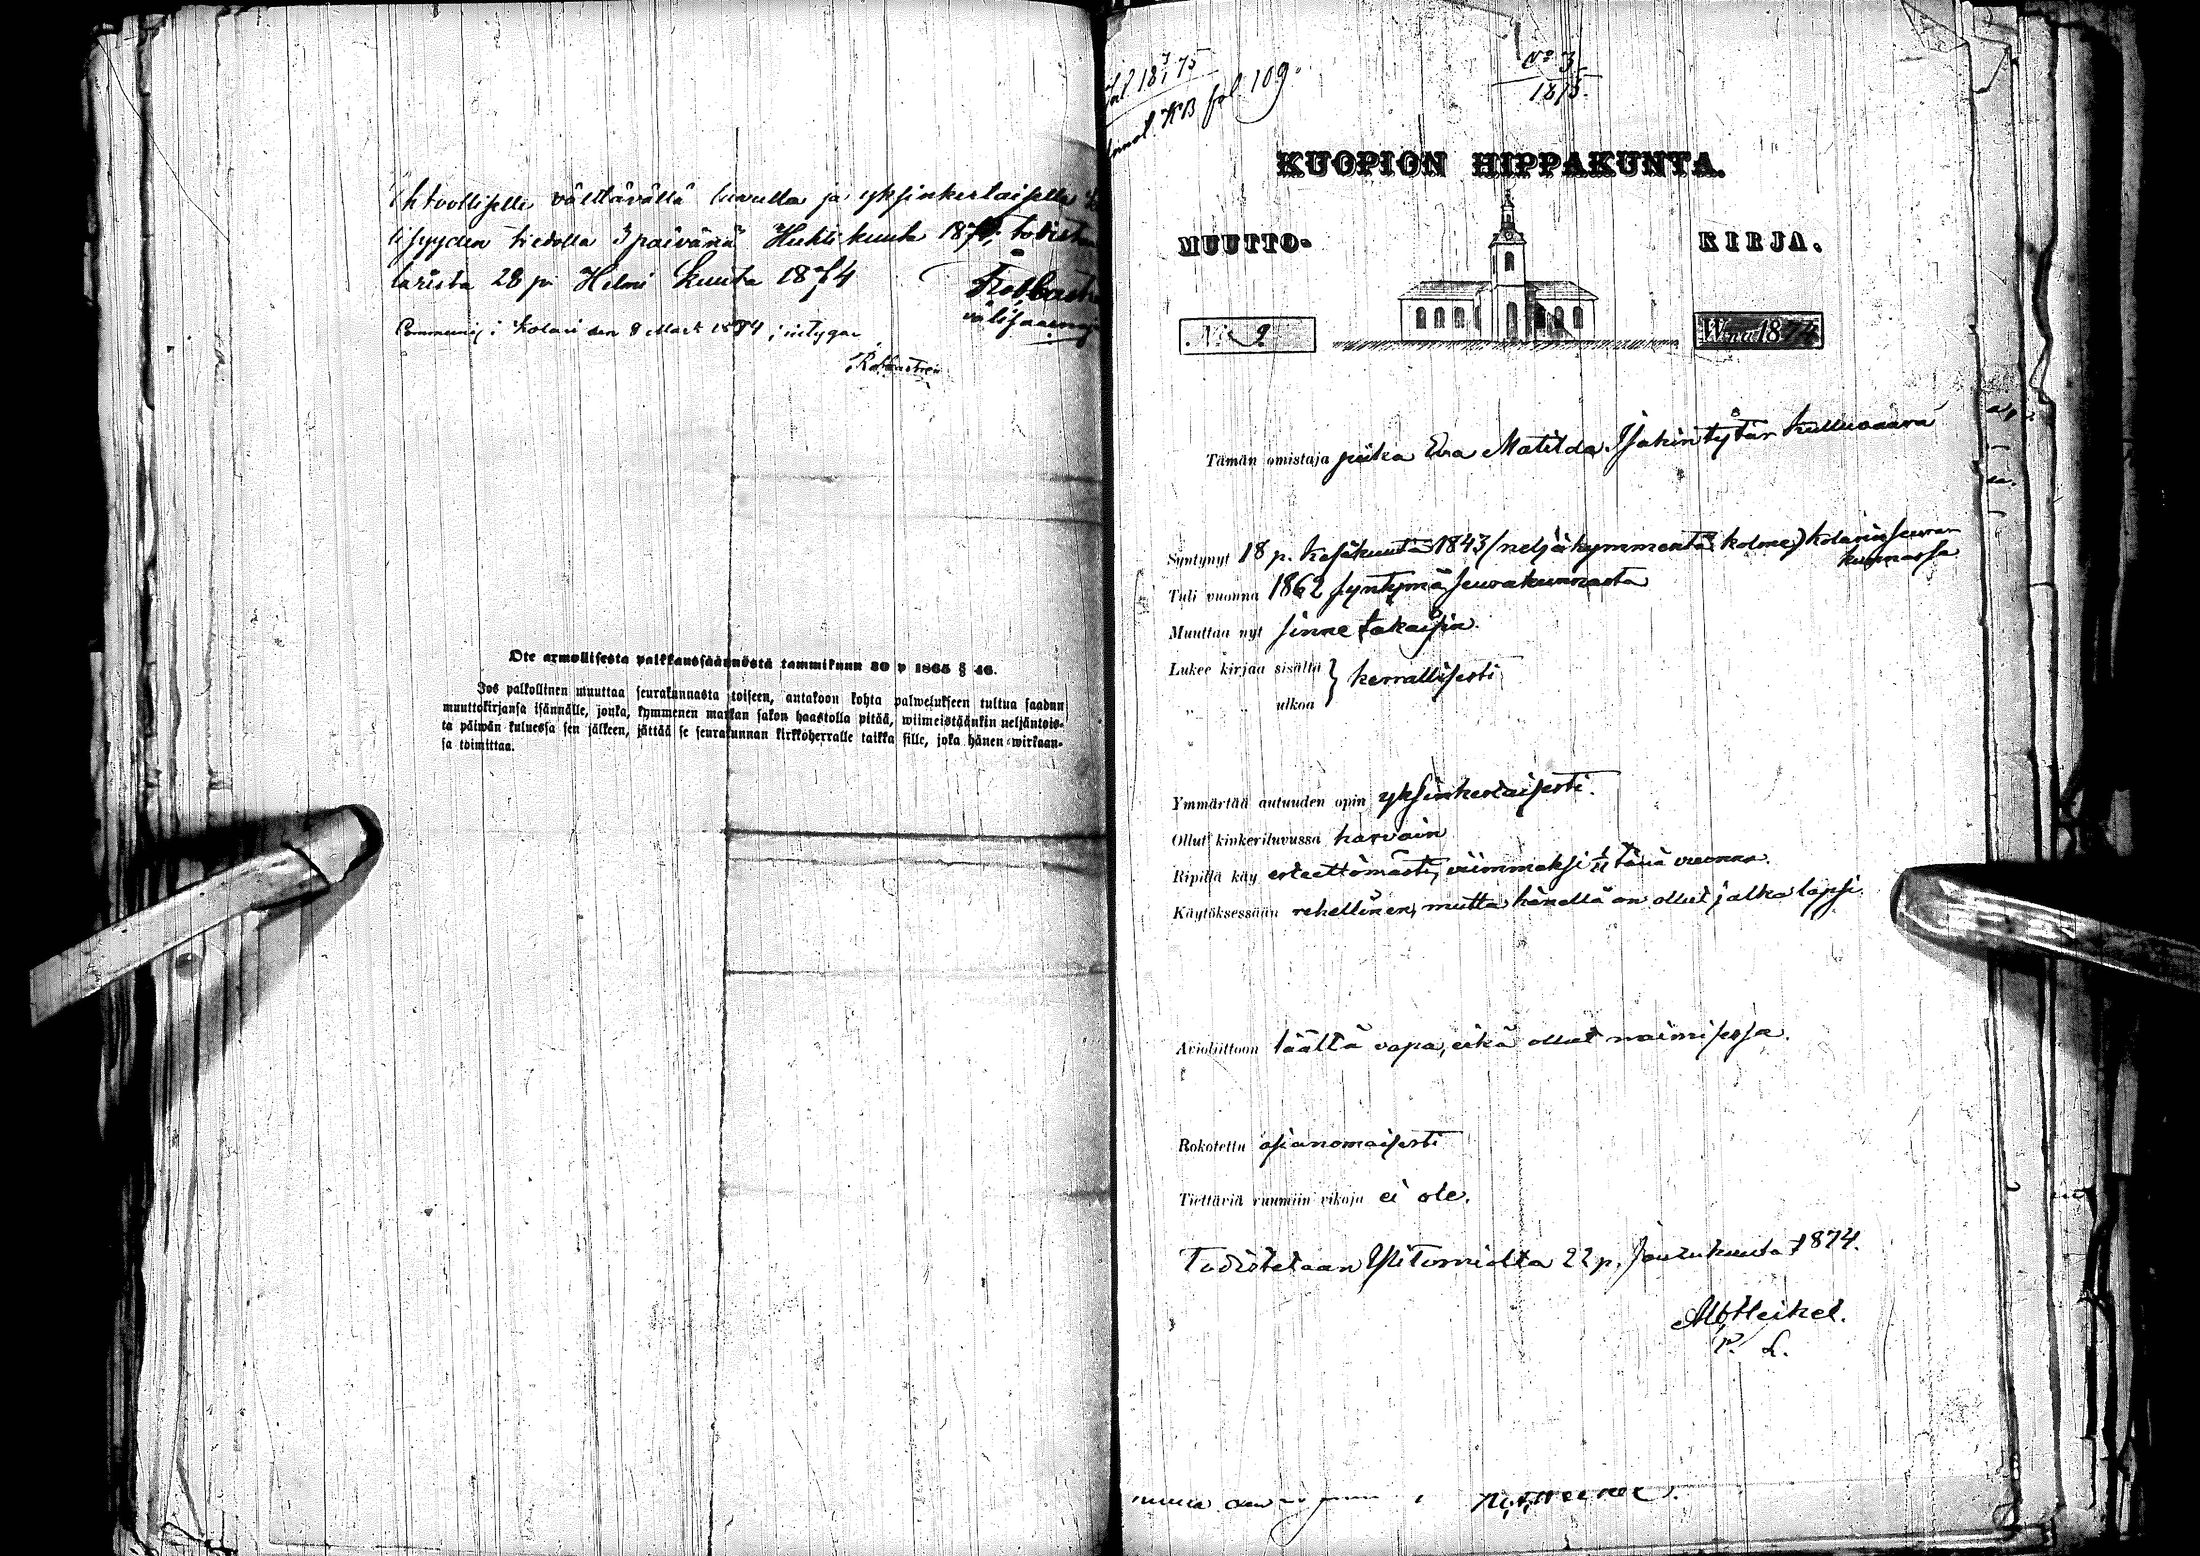 välttävällä luvulla ja yksinkertaisella
tiedolla 3 päivänä Huhti kuuta todistaa
28 p: Helmi kuuta 1874
i Kolari den 8 Mars 1874; intygar
Ote armollisesta palkkaussäännöstä tammikuun 30 p 1865 § 46.
Jos palkollinen muuttaa seurakunnasta toiseen, antakoon kohta palwelukseen tultua saadun
muuttokirjansa isännälle, jonka, kymmenen markan sakon haastolla pitää, wiimeistäänkin neljäntois-
ta päiwän kuluessa sen jälkeen, jättää se seurakunnan kirkkoherralle taikka sille, joka hänen wirkaan-
sa toimittaa.
fol 109.
No 3
1875.
KUOPION HIPPAKUNTA.
MUUTTO- KIRJA.
No 2 Wnna 1874
Tämän omistaja piika Eva Matilda Isakin tytär
Syntynyt 18 p. Kesäkuuta 1843 (neljäkymmentä kolme) Kolarin seura-
kunnassa
Tuli vuonna 1862 syntymä seurakunnasta
Muuttaa nyt sinne takaisin.
Lukee kirjaa sisältä } kerrallisesti
„ „ ulkoa
Ymmärtää autuuden opin yksinkertaisesti.
Ollut kinkeriluvussa harvoin
Ripillä käy esteettömästi, viimmeksi tänä vuonna.
Käytöksessään rehellinen, mutta hänellä on ollut jalka lapsi.
Avioliittoon täältä vapa, eikä ollut naimisessa.
Rokotettu asianomaisesti
Tiettäviä ruumiin vikoja ei ole.
Todistetaan Yli Torniolta 22 p. Joulukuuta 1874.
Alb Heikel.